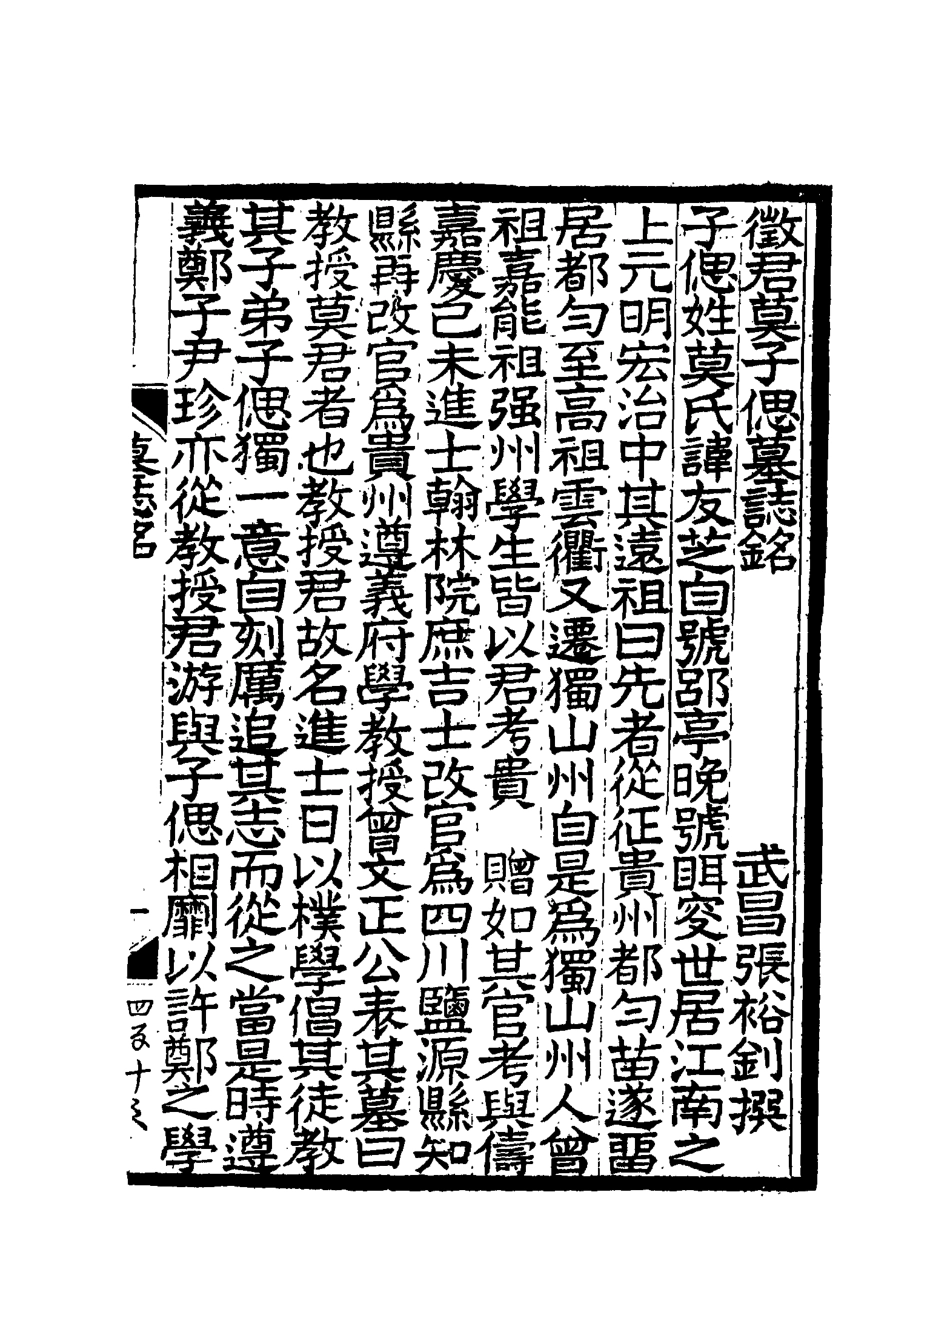 徵君莫子偲墓誌銘
武昌張裕釗撰
子偲姓莫氏諱友芝自號郘亭晚號眲叟世居江南之
上元明宏治中其遠祖曰先者從征貴州都勻苗遂畱
居都勻至高祖雲衢又遷獨山州自是為獨山州人曾
祖嘉能祖强州學生皆以君考貴　贈如其官考與儔
嘉慶己未進士翰林院庶吉士改官為四川鹽源縣知
縣再改官為貴州遵義府學教授曾文正公表其墓曰
教授莫君者也教授君故名進士日以樸學倡其徒教
其子弟子偲獨一意自刻厲追其志而從之當是時遵
義鄭子尹珍亦從教授君游與子偲相劘以許鄭之學
墓志銘
一